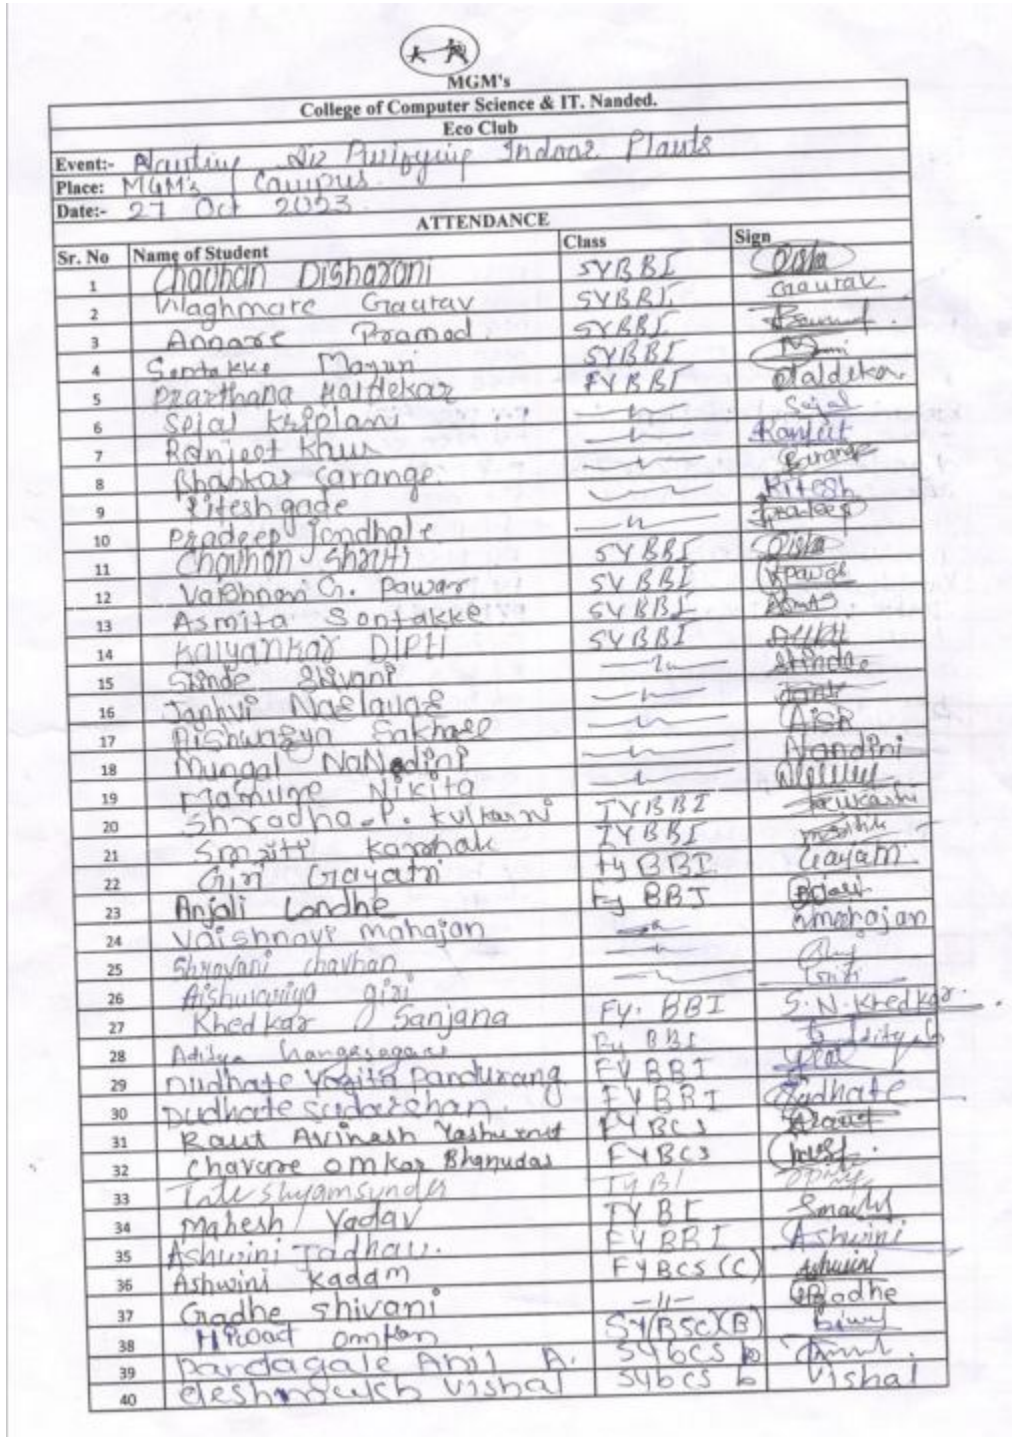 MGM's
College of Computer Science & IT. Nanded.
Eco Club
Event:- Planting Air Purifying Indoor Plants
Place: MGM's Campus.
Date:- 27 Oct 2023
ATTENDANCE
Sr. No Name of Student Class Sign
1 Chavhan Disharani SYBBI Disha
2 Waghmare Gaurav SYBBI Gaurav
3 Annare Pramod SYBBI
4 Sontakke Mayuri SYBBI
5 Prarthana Haldekar FYBBI Haldekar
6 Sejal Kriplani -〃- Sejal
7 Ranjeet Khus -〃- Ranjeet
8 Bhaskar Sarange -〃- Sarange
9 Ritesh gade -〃- Ritesh
10 Pradeep Jondhale -〃- Pradeep
11 Chavhan Shruti SYBBI Disha
12 Vaishnavi G. Pawar SYBBI Vpawar
13 Asmita Sontakke SYBBI Asmita
14 Kalyankar Dipti SYBBI
15 Shinde Shivani -〃- Shinde
16 Janhvi -〃-
17 Aishwarya -〃- Aish
18 Mungal NaNadini -〃- Nandini
19 Mamune Nikita -〃-
20 Shradha P. Kulkarni TYBBI
21 Smriti TYBBI
22 Giri Gayatri ty BBI. Gayatri
23 Anjali Londhe Fy BBI
24 Vaishnavi mahajan -〃- Vmahajan
25 Shravani chavhan -〃-
26 Aishwariya giri -〃- Giri
27 Khedkar Sanjana Fy. BBI S.N.Khedkar.
28 Aditya BBI Aditya
29 Dudhate Yogita Pandurang FYBBI
30 Dudhate Sudarshan. FYBBI Dudhate
31 Raut Avinash FYBCS Raut
32 Chavare omkar Bhanudas FYBCS
33 Tate Shyamsunder TYBI
34 Mahesh Yadav TYBI
35 Ashwini Jadhav. FYBBI Ashwini
36 Ashwini Kadam FYBCS (C) Ashwini
37 Gadhe Shivani -11- Gadhe
38 omkar SY(BSC)(B)
39 Dandagale Anil A. SYbCS b
40 deshmukh Vishal SYbCS b Vishal